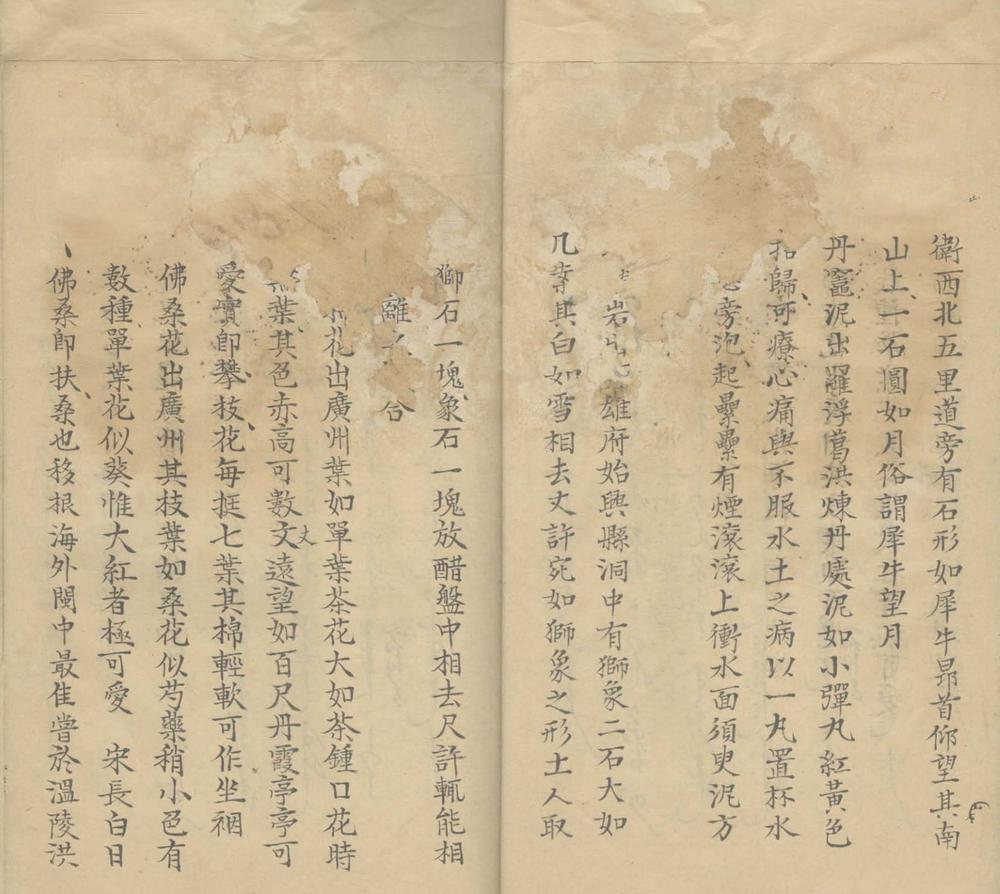 衛西北五里道旁有石形如犀牛昂首仰望其南
山上一石圓如月俗謂犀牛望月
丹竈泥出羅浮葛洪煉丹處泥如小彈丸紅黃色
拾歸可療心痛與不服水土之病以一丸置杯水
旁泡起壘壘有煙滾滾上衝水面須臾泥方
岩 雄府始興縣洞中有獅象二石大如
几案其白如雪相去丈許宛如獅象之形土人取
獅石一塊象石一塊放醋盤中相去尺許輒能相
離 合
花出廣州葉如單葉茶花大如茶鍾口花時
葉其色赤高可數文丈遠望如百尺丹霞亭亭可
愛實即攀枝花每挺七葉其棉輕軟可作坐裀
佛桑花出廣州其枝葉如桑花似芍藥稍小色有
數種單葉花似葵惟大紅者極可愛 宋長白曰
佛桑即扶桑也移根海外閩中最佳嘗於溫陵洪